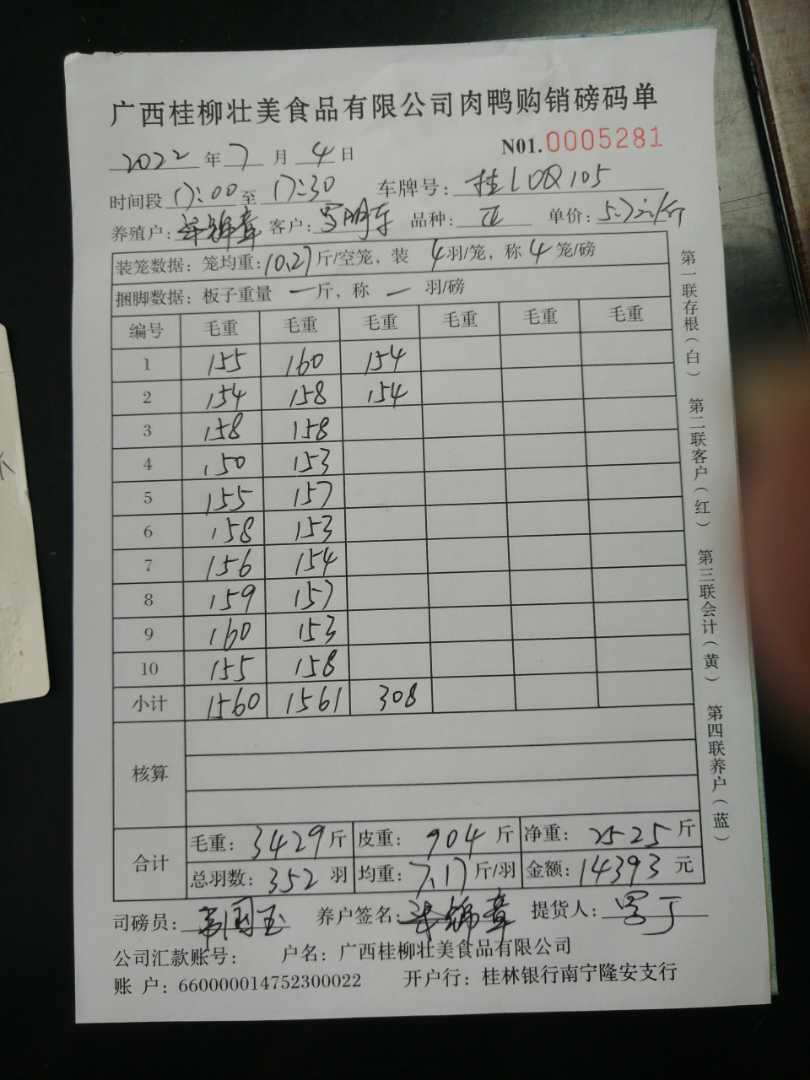 广西桂柳壮美食品有限公司肉鸭购销磅码单
N01.0005281
2022年7月4日
时间段17:00至17:30 车牌号：桂L0Q105
养殖户：锦章 客户： 品种： 单价：5.7元/斤
装笼数据：笼均重：10.27斤/空笼，装4羽/笼，称4笼/磅
捆脚数据：板子重量一斤，称一羽/磅
编号 毛重 毛重 毛重 毛重 毛重 毛重
1 155 160 154
2 154 158 154
3 158 158
4 150 153
5 155 157
6 158 153
7 156 154
8 159 157
9 160 153
10 155 158
小计 1560 1561 308
核算
合计 毛重：3429斤 皮重：904斤 净重：2525斤
总羽数：352羽 均重：7.17斤/羽 金额：14393元
司磅员：韦国玉 养户签名：锦章 提货人：
公司汇款账号： 户名：广西桂柳壮美食品有限公司
账 户：660000014752300022 开户行：桂林银行南宁隆安支行
第一联存根（白） 第二联客户（红） 第三联会计（黄） 第四联养户（蓝）